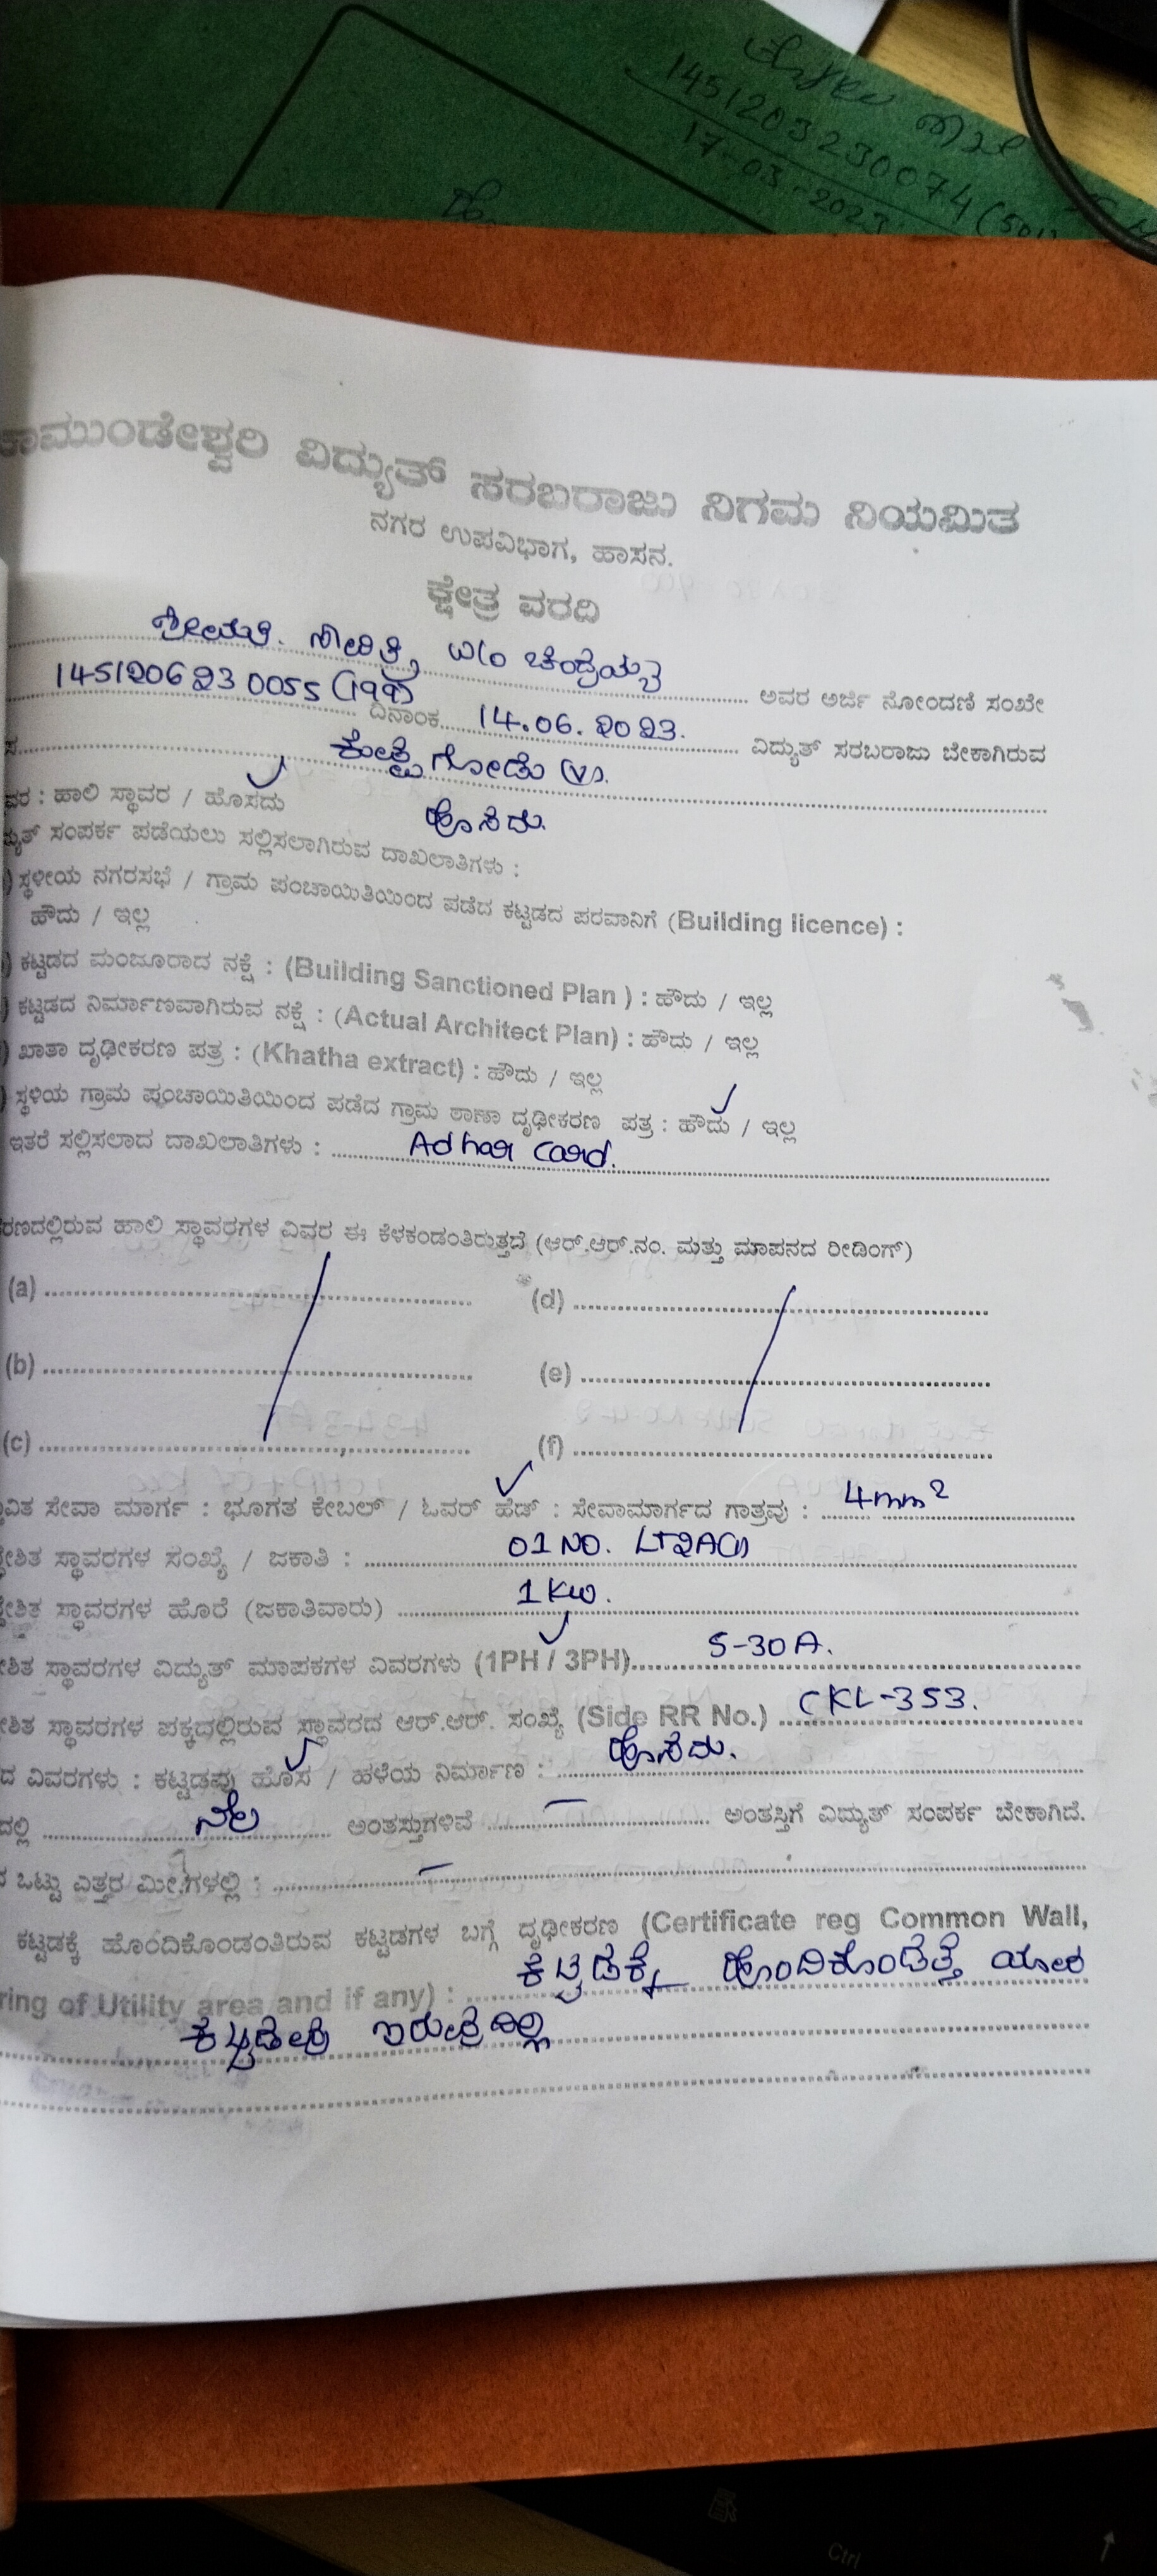 1451203230074 (501
17-03-2023
ಚಾಮುಂಡೇಶ್ವರಿ ವಿದ್ಯುತ್ ಸರಬರಾಜು ನಿಗಮ ನಿಯಮಿತ
ನಗರ ಉಪವಿಭಾಗ, ಹಾಸನ.
ಕ್ಷೇತ್ರ ವರದಿ
ಶ್ರೀಮತಿ. W/o ಚಂದ್ರಯ್ಯ ಅವರ ಅರ್ಜಿ ನೋಂದಣಿ ಸಂಖೇ
145120623 0055 (199) ದಿನಾಂಕ 14.06.2023. ವಿದ್ಯುತ್ ಸರಬರಾಜು ಬೇಕಾಗಿರುವ
ವರ : ಹಾಲಿ ಸ್ಥಾವರ / ಹೊಸದು ಹೊಸದು.
ದ್ಯುತ್ ಸಂಪರ್ಕ ಪಡೆಯಲು ಸಲ್ಲಿಸಲಾಗಿರುವ ದಾಖಲಾತಿಗಳು :
) ಸ್ಥಳೀಯ ನಗರಸಭೆ / ಗ್ರಾಮ ಪಂಚಾಯಿತಿಯಿಂದ ಪಡೆದ ಕಟ್ಟಡದ ಪರವಾನಿಗೆ (Building licence) :
ಹೌದು / ಇಲ್ಲ
) ಕಟ್ಟಡದ ಮಂಜೂರಾದ ನಕ್ಷೆ : (Building Sanctioned Plan ) : ಹೌದು / ಇಲ್ಲ
) ಕಟ್ಟಡದ ನಿರ್ಮಾಣವಾಗಿರುವ ನಕ್ಷೆ : (Actual Architect Plan) : ಹೌದು / ಇಲ್ಲ
) ಖಾತಾ ದೃಢೀಕರಣ ಪತ್ರ : (Khatha extract) : ಹೌದು / ಇಲ್ಲ
) ಸ್ಥಳಿಯ ಗ್ರಾಮ ಪಂಚಾಯಿತಿಯಿಂದ ಪಡೆದ ಗ್ರಾಮ ಠಾಣಾ ದೃಢೀಕರಣ ಪತ್ರ : ಹೌದು / ಇಲ್ಲ
ಇತರೆ ಸಲ್ಲಿಸಲಾದ ದಾಖಲಾತಿಗಳು : Adhar card.
ರಣದಲ್ಲಿರುವ ಹಾಲಿ ಸ್ಥಾವರಗಳ ವಿವರ ಈ ಕೆಳಕಂಡಂತಿರುತ್ತದೆ (ಆರ್.ಆರ್.ನಂ. ಮತ್ತು ಮಾಪನದ ರೀಡಿಂಗ್)
(a) (d)
(b) (e)
(c) (f)
ವಿತ ಸೇವಾ ಮಾರ್ಗ : ಭೂಗತ ಕೇಬಲ್ / ಓವರ್ ಹೆಡ್ : ಸೇವಾಮಾರ್ಗದ ಗಾತ್ರವು : 4mm²
ೇಶಿತ ಸ್ಥಾವರಗಳ ಸಂಖ್ಯೆ / ಜಕಾತಿ : 01 NO. LT2A(i)
ೇಶಿತ ಸ್ಥಾವರಗಳ ಹೊರೆ (ಜಕಾತಿವಾರು) 1 KW.
ೇಶಿತ ಸ್ಥಾವರಗಳ ವಿದ್ಯುತ್ ಮಾಪಕಗಳ ವಿವರಗಳು (1PH / 3PH) 5-30A.
ೇಶಿತ ಸ್ಥಾವರಗಳ ಪಕ್ಕದಲ್ಲಿರುವ ಸ್ಥಾವರದ ಆರ್.ಆರ್. ಸಂಖ್ಯೆ (Side RR No.) CKL-353.
ದ ವಿವರಗಳು : ಕಟ್ಟಡವು ಹೊಸ / ಹಳೆಯ ನಿರ್ಮಾಣ : ಹೊಸದು.
ದಲ್ಲಿ ನೆಲ ಅಂತಸ್ತುಗಳಿವೆ — ಅಂತಸ್ತಿಗೆ ವಿದ್ಯುತ್ ಸಂಪರ್ಕ ಬೇಕಾಗಿದೆ.
ದ ಒಟ್ಟು ಎತ್ತರ ಮೀ.ಗಳಲ್ಲಿ : —
ಕಟ್ಟಡಕ್ಕೆ ಹೊಂದಿಕೊಂಡಂತಿರುವ ಕಟ್ಟಡಗಳ ಬಗ್ಗೆ ದೃಢೀಕರಣ (Certificate reg Common Wall,
ring of Utility area and if any) : ಕಟ್ಟಡಕ್ಕೆ ಹೊಂದಿಕೊಂಡಂತೆ ಯಾವ
ಕಟ್ಟಡವೂ ಇರುವುದಿಲ್ಲ
Ctrl